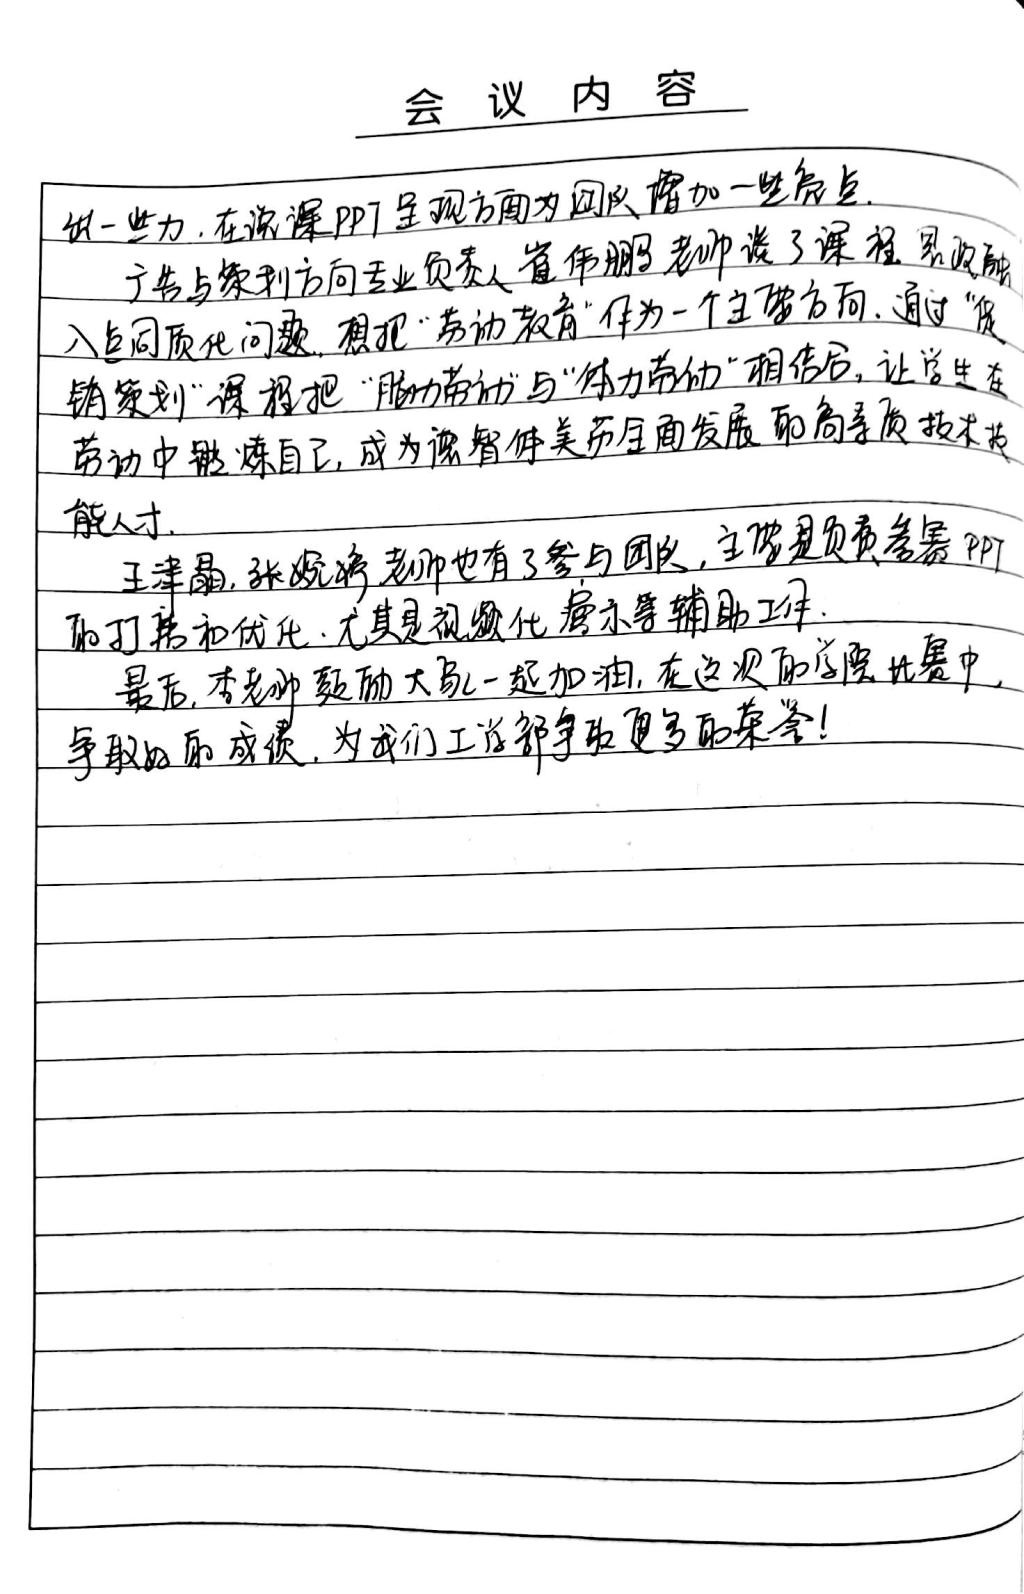 会议内容
出一些力,在说课PPT呈现方面为团队增加一些亮点.
广告与策划方向专业负责人崔伟鹏老师谈了课程思政融
入点同质化问题,想把“劳动教育”作为一个主要方向,通过“促
销策划”课程把“脑力劳动”与“体力劳动”相结合,让学生在
劳动中锻炼自己,成为德智体美劳全面发展的高素质技术技
能人才.
王津晶,张婉婷老师也有了参与团队,主要是负责参赛PPT
的打磨和优化.尤其是视频化展示等辅助工作.
最后,李老师鼓励大家一起加油,在这次的学院比赛中,
争取好的成绩,为我们工学部争取更多的荣誉!